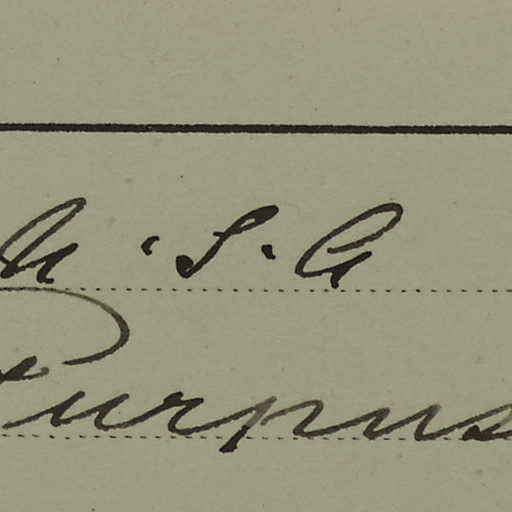 U.S.A
Purpus